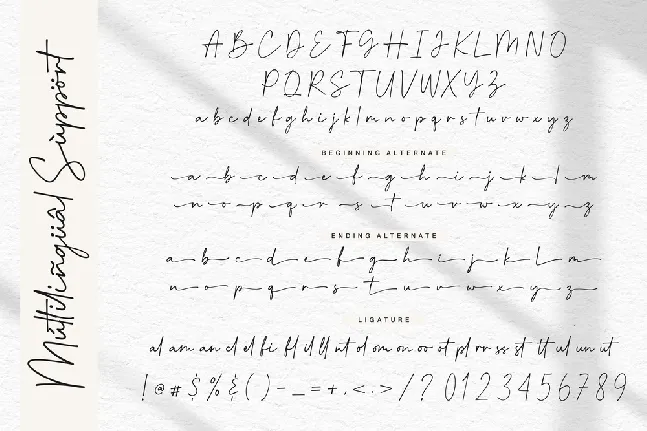 Mültilingüâl Süppört
A B C D E F G H I J K L M N O
P Q R S T U V W X Y Z
a b c d e f g h i j k l m n o p q r s t u v w x y z
BEGINNING ALTERNATE
a b c d e f g h i j k l m
n o p q r s t u v w x y z
ENDING ALTERNATE
a b c d e f g h i j k l m
n o p q r s t u v w x y z
LIGATURE
al am an cl el fi fl il ll nt ol om on oo ot pl rr ss st tt ul un ut
! @ # $ % & ( ) - _ = + , < . > / ? 0 1 2 3 4 5 6 7 8 9